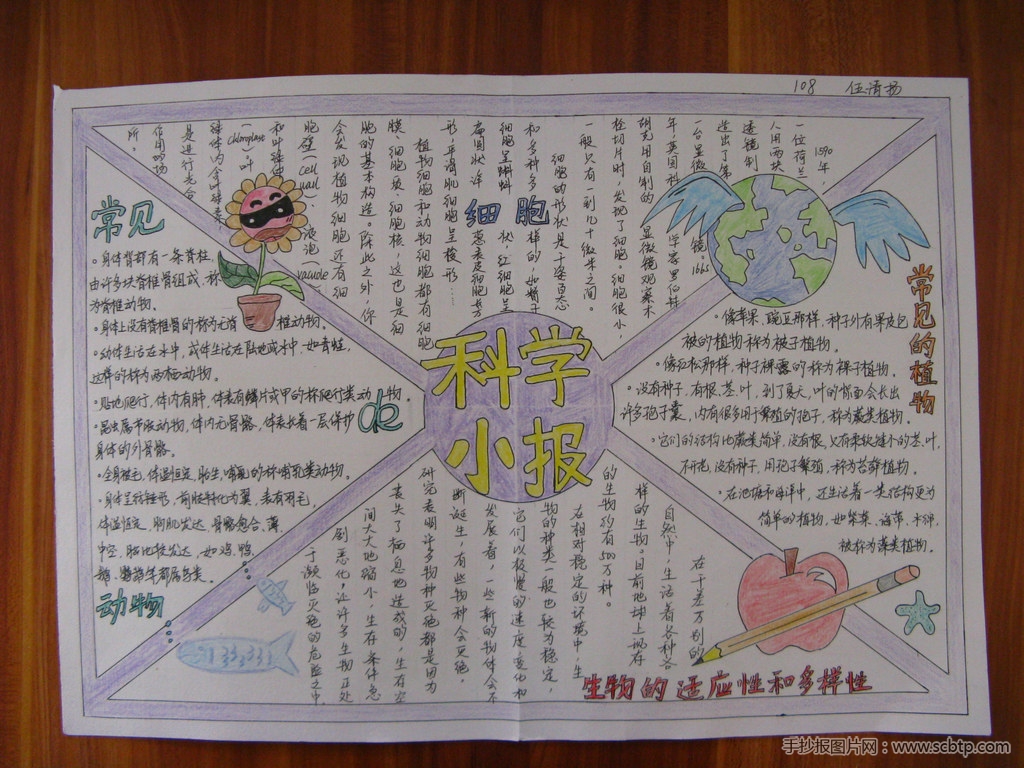 108 伍清扬
科学
小报
细胞
1590年,
一位荷兰
人用两块
透镜制
造出了第
一台显微
镜。1665
年,英国科
学家罗伯特·
胡克用自制的
显微镜观察木
栓切片时,发现了细胞。细胞很小,
一般只有一到几十微米之间。
细胞的形状是千姿百态
和多种多
样的,如精子
细胞呈蝌蚪
状,红细胞呈
扁圆状,洋
葱表皮细胞长
形,平滑肌细胞呈梭形……
植物细胞和动物细胞都有细胞
膜、细胞质、细胞核,这也是细
胞的基本构造。除此之外,你
会发现植物细胞还有细
胞壁(cell
wall)、
液泡
vacuole)
和叶绿体
叶
绿体内含叶绿素,
是进行光合
作用的场
所。
常见
的
动物
•身体背部有一条脊柱,
由许多块脊椎骨组成,称
为脊椎动物。
•身体上没有脊椎骨的称为无脊椎动物。
•幼体生活在水中,成体生活在陆地或水中,如青蛙,
这样的称为两栖动物。
•贴地爬行,体内有肺,体表有鳞片或甲的称爬行类动物。
•昆虫属节肢动物,体内无骨骼,体表长着一层保护
身体的外骨骼。
•全身被毛,体温恒定,胎生,哺乳的称哺乳类动物。
•身体呈纺锤形,前肢特化为翼,表有羽毛,
体温恒定,胸肌发达,骨骼愈合,薄,
中空,脑比较发达,如鸡,鸭,
鹅
等都属鸟类。
常见的植物
•像苹果、豌豆那样,种子外有果皮包
被的植物称为被子植物。
•像红松那样,种子裸露的称为裸子植物。
•没有种子,有根、茎、叶,到了夏天,叶的背面会长出
许多孢子囊,内有很多用于繁殖的孢子,称为蕨类植物。
•它们的结构比蕨类简单,没有根,只有柔软矮小的茎、叶,
不开花,没有种子,用孢子繁殖,称为苔藓植物。
•在池塘和海洋中,还生活着一类结构更为
简单的植物,如紫菜、海带、水绵,
被称为藻类植物。
生物的适应性和多样性
在千差万别的
自然中,生活着各种各
样的生物。目前地球上现存
的生物约有500万种。
在相对稳定的环境中,生
物的种类一般也较为稳定,
它们以极慢的速度变化和
发展着,一些新的物体会不
断诞生,有些物种会灭绝,
研究表明许多物种灭绝都是因为
丧失了栖息地造成的,生存空
间大大地缩小,生存条件急
剧恶化,让许多生物正处
于濒临灭绝的危险之中。
手抄报图片网:www.scbtp.com